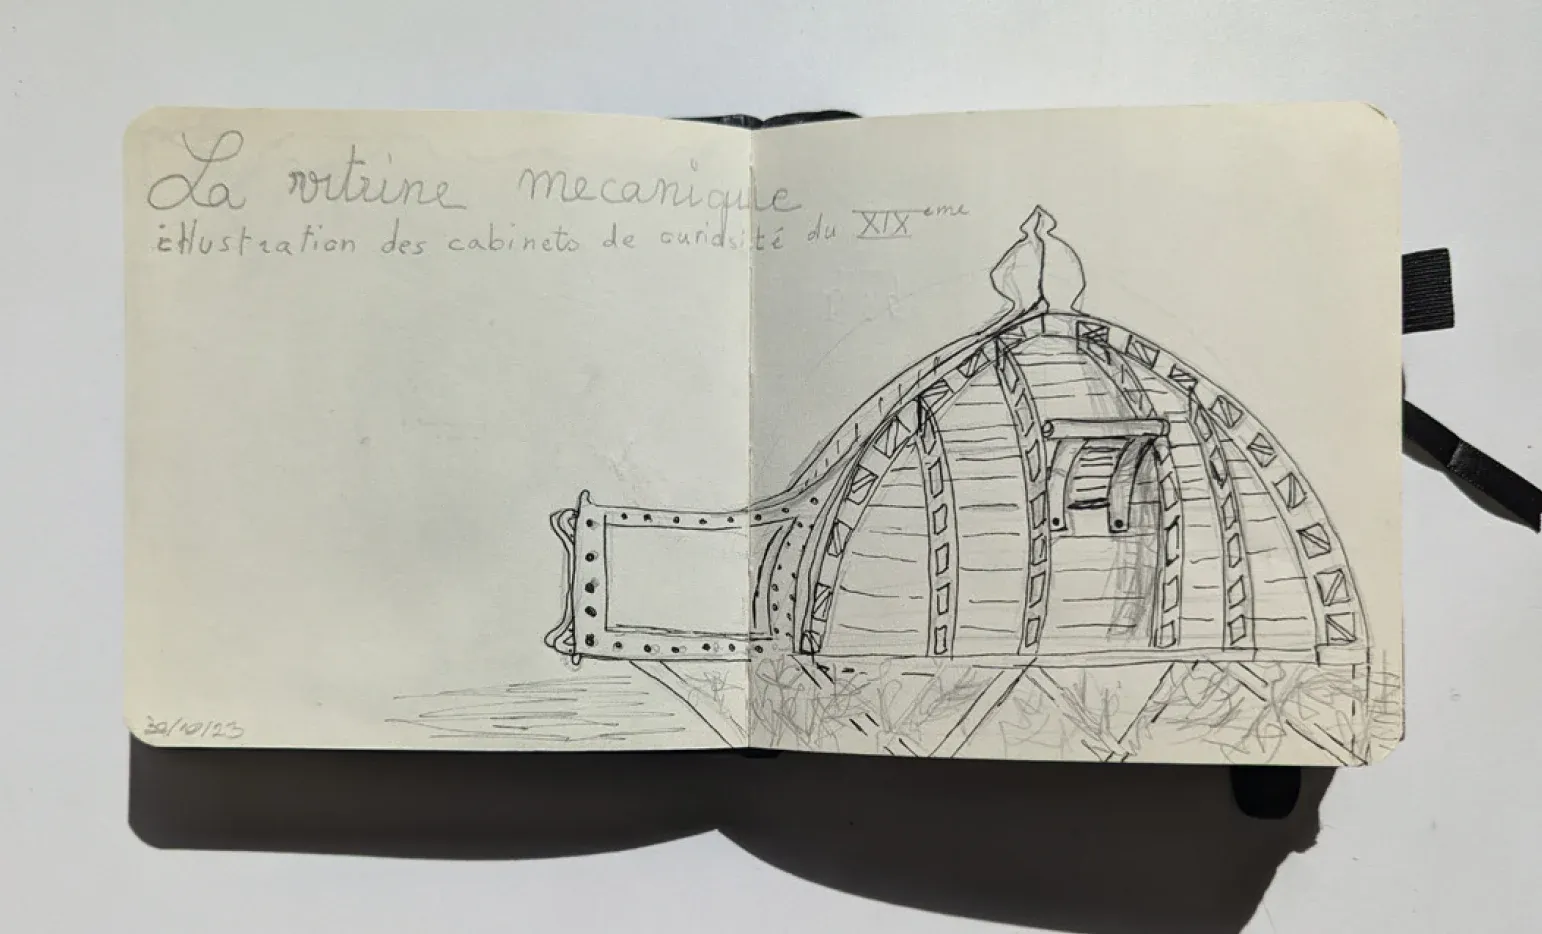 La vitrine mecanique
illustration des cabinets de curiosité du XIXeme
30/10/23